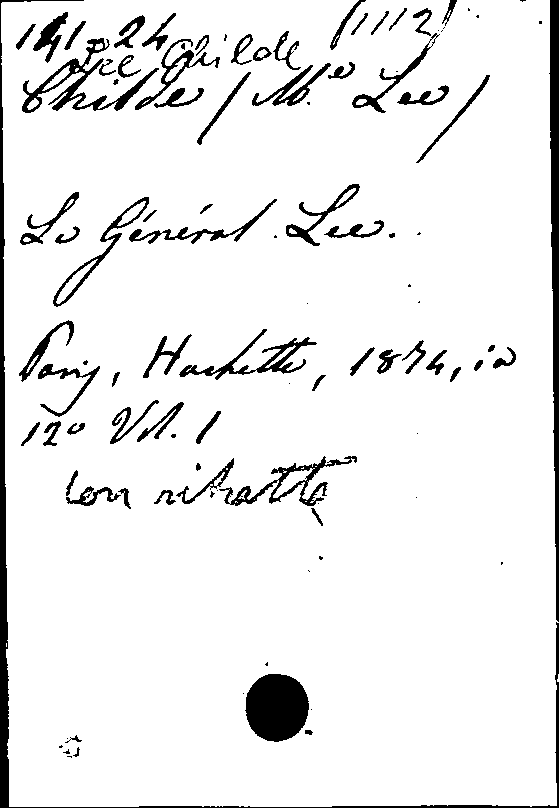 141-24 (1112)
Lee Childe
Childe (Mo Lee)
Le Général Lee.
Paris, Hachette, 1874, in
12º Vol. 1
con ritratto